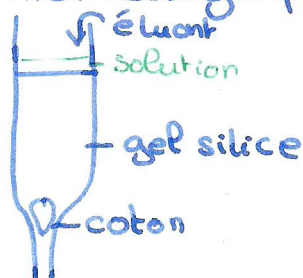 éluant
solution
gel silice
coton